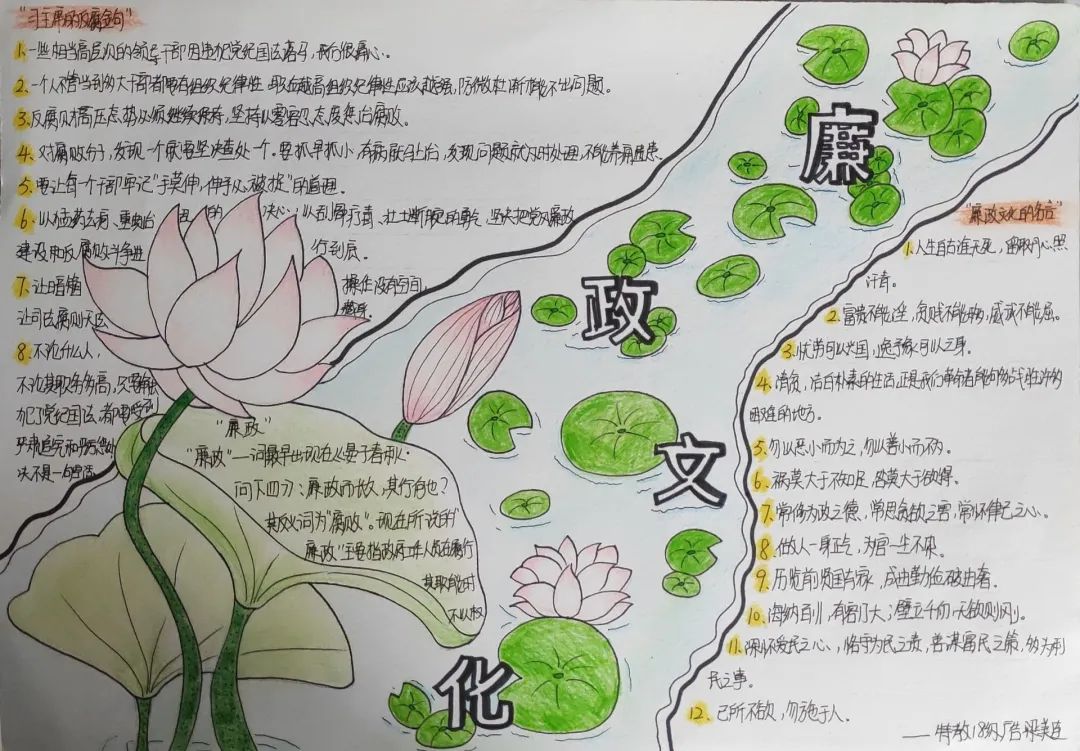 "习主席的反腐金句"
1. 一些相当高层次的领导干部因违犯党纪国法落马,我们很痛心。
2. 一个人不管当到多大干部都要有组织纪律性,职位越高组织纪律性应该越强,防微杜渐才能不出问题。
3. 反腐败高压态势必须继续保持,坚持以零容忍态度惩治腐败。
4. 对腐败分子,发现一个就要坚决查处一个。要抓早抓小,有病就马上治,发现问题就及时处理,不能养痈遗患。
5. 要让每一个干部牢记"手莫伸,伸手必被捉"的道理。
6. 以猛药去疴、重典治 的 决心,以刮骨疗毒、壮士断腕的勇气,坚决把党风廉政
建设和反腐败斗争进 行到底。
7. 让暗箱 操作没有空间,
让司法腐败无法 藏身。
8. 不论什么人,
不论其职务多高,只要触
犯了党纪国法,都要受到
严肃追究和严厉惩处
决不是一句空话
"廉政"
"廉政"一词最早出现在《晏子春秋·
问下四》:廉政而长久,其行何也?
其反义词为"腐败"。现在所说的"
廉政"主要指政府工作人员在履行
其职能时
不以权
廉
政
文
化
"廉政文化的名言"
1. 人生自古谁无死,留取丹心照
汗青。
2. 富贵不能淫,贫贱不能移,威武不能屈。
3. 忧劳可以兴国,逸豫可以亡身。
4. 清贫,洁白朴素的生活,正是我们革命者能够战胜许多
困难的地方。
5. 勿以恶小而为之,勿以善小而不为。
6. 祸莫大于不知足,咎莫大于欲得。
7. 常修为政之德,常思贪欲之害,常怀律己之心。
8. 做人一身正气,为官一尘不染。
9. 历览前贤国与家,成由勤俭破由奢。
10. 海纳百川,有容乃大;壁立千仞,无欲则刚。
11. 常怀爱民之心,恪守为民之责,善谋富民之策,多为利
民之事。
12. 己所不欲,勿施于人。
——特教18级